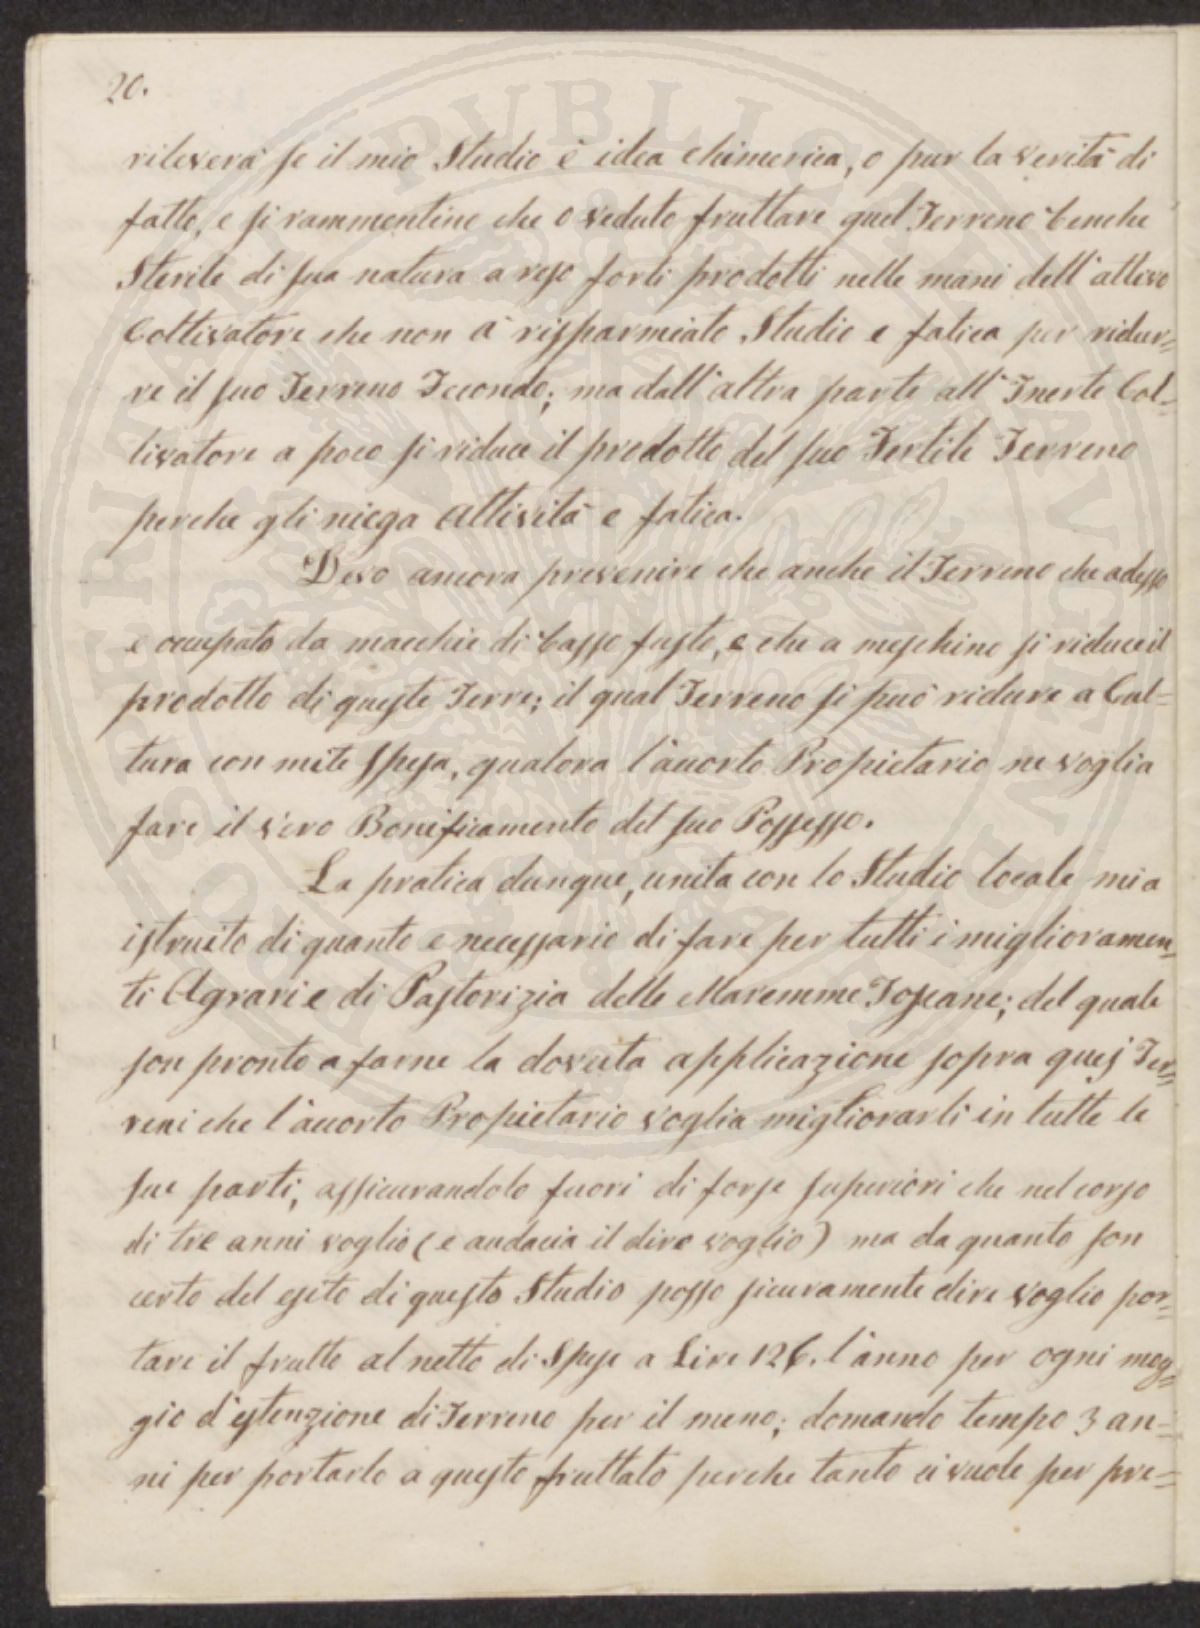 20.
rileverà se il mio Studio è idea chimerica, o pur la verità di
fatto, e si rammentino che o veduto fruttare quel Terreno benche
Sterile di sua natura a reso forti prodotti nelle mani dell'attivo
Coltivatore che non à risparmiato Studio e fatica per ridur=
re il suo Terreno Fecondo; ma dall'altra parte all'Inerte Col=
tivatore a poco si riduce il prodotto del suo Fertile Terreno
perche gli niega attività e fatica.
Devo ancora prevenire che anche il Terreno che adesso
e occupato da macchie di basso fusto, e che a meschino si riduce il
prodotto di queste Terre; il qual Terreno si può ridurre a Cul=
tura con mite spesa, qualora l'accorto Propietario ne voglia
fare il vero Bonificamento del suo Possesso.
La pratica dunque, unita con lo Studio locale mi a
istruito di quanto e necessario di fare per tutti i migliioramen=
ti Agrari e di Pastorizia delle Maremme Toscane; del quale
son pronto a farne la dovuta applicazione sopra quei Ter=
reni che l'accorto Propietario voglia migliorarli in tutte le
sue parti, assicurandolo fuori di forze superiori che nel corso
di tre anni voglio (e audacia il dire voglio) ma da quanto son
certo del esito di questo Studio posso sicuramente dire voglio por=
tare il frutto al netto di Spese a Lire 126. l'anno per ogni mog=
gio d'estenzione di Terreno per il meno; domando tempo 3 an=
ni per portarlo a questo fruttato perche tanto ci vuole per pre=